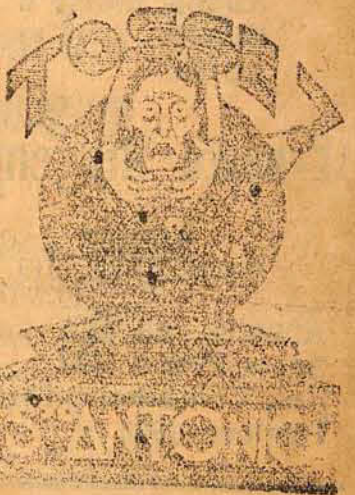 TOSSE!
Sto ANTONIO